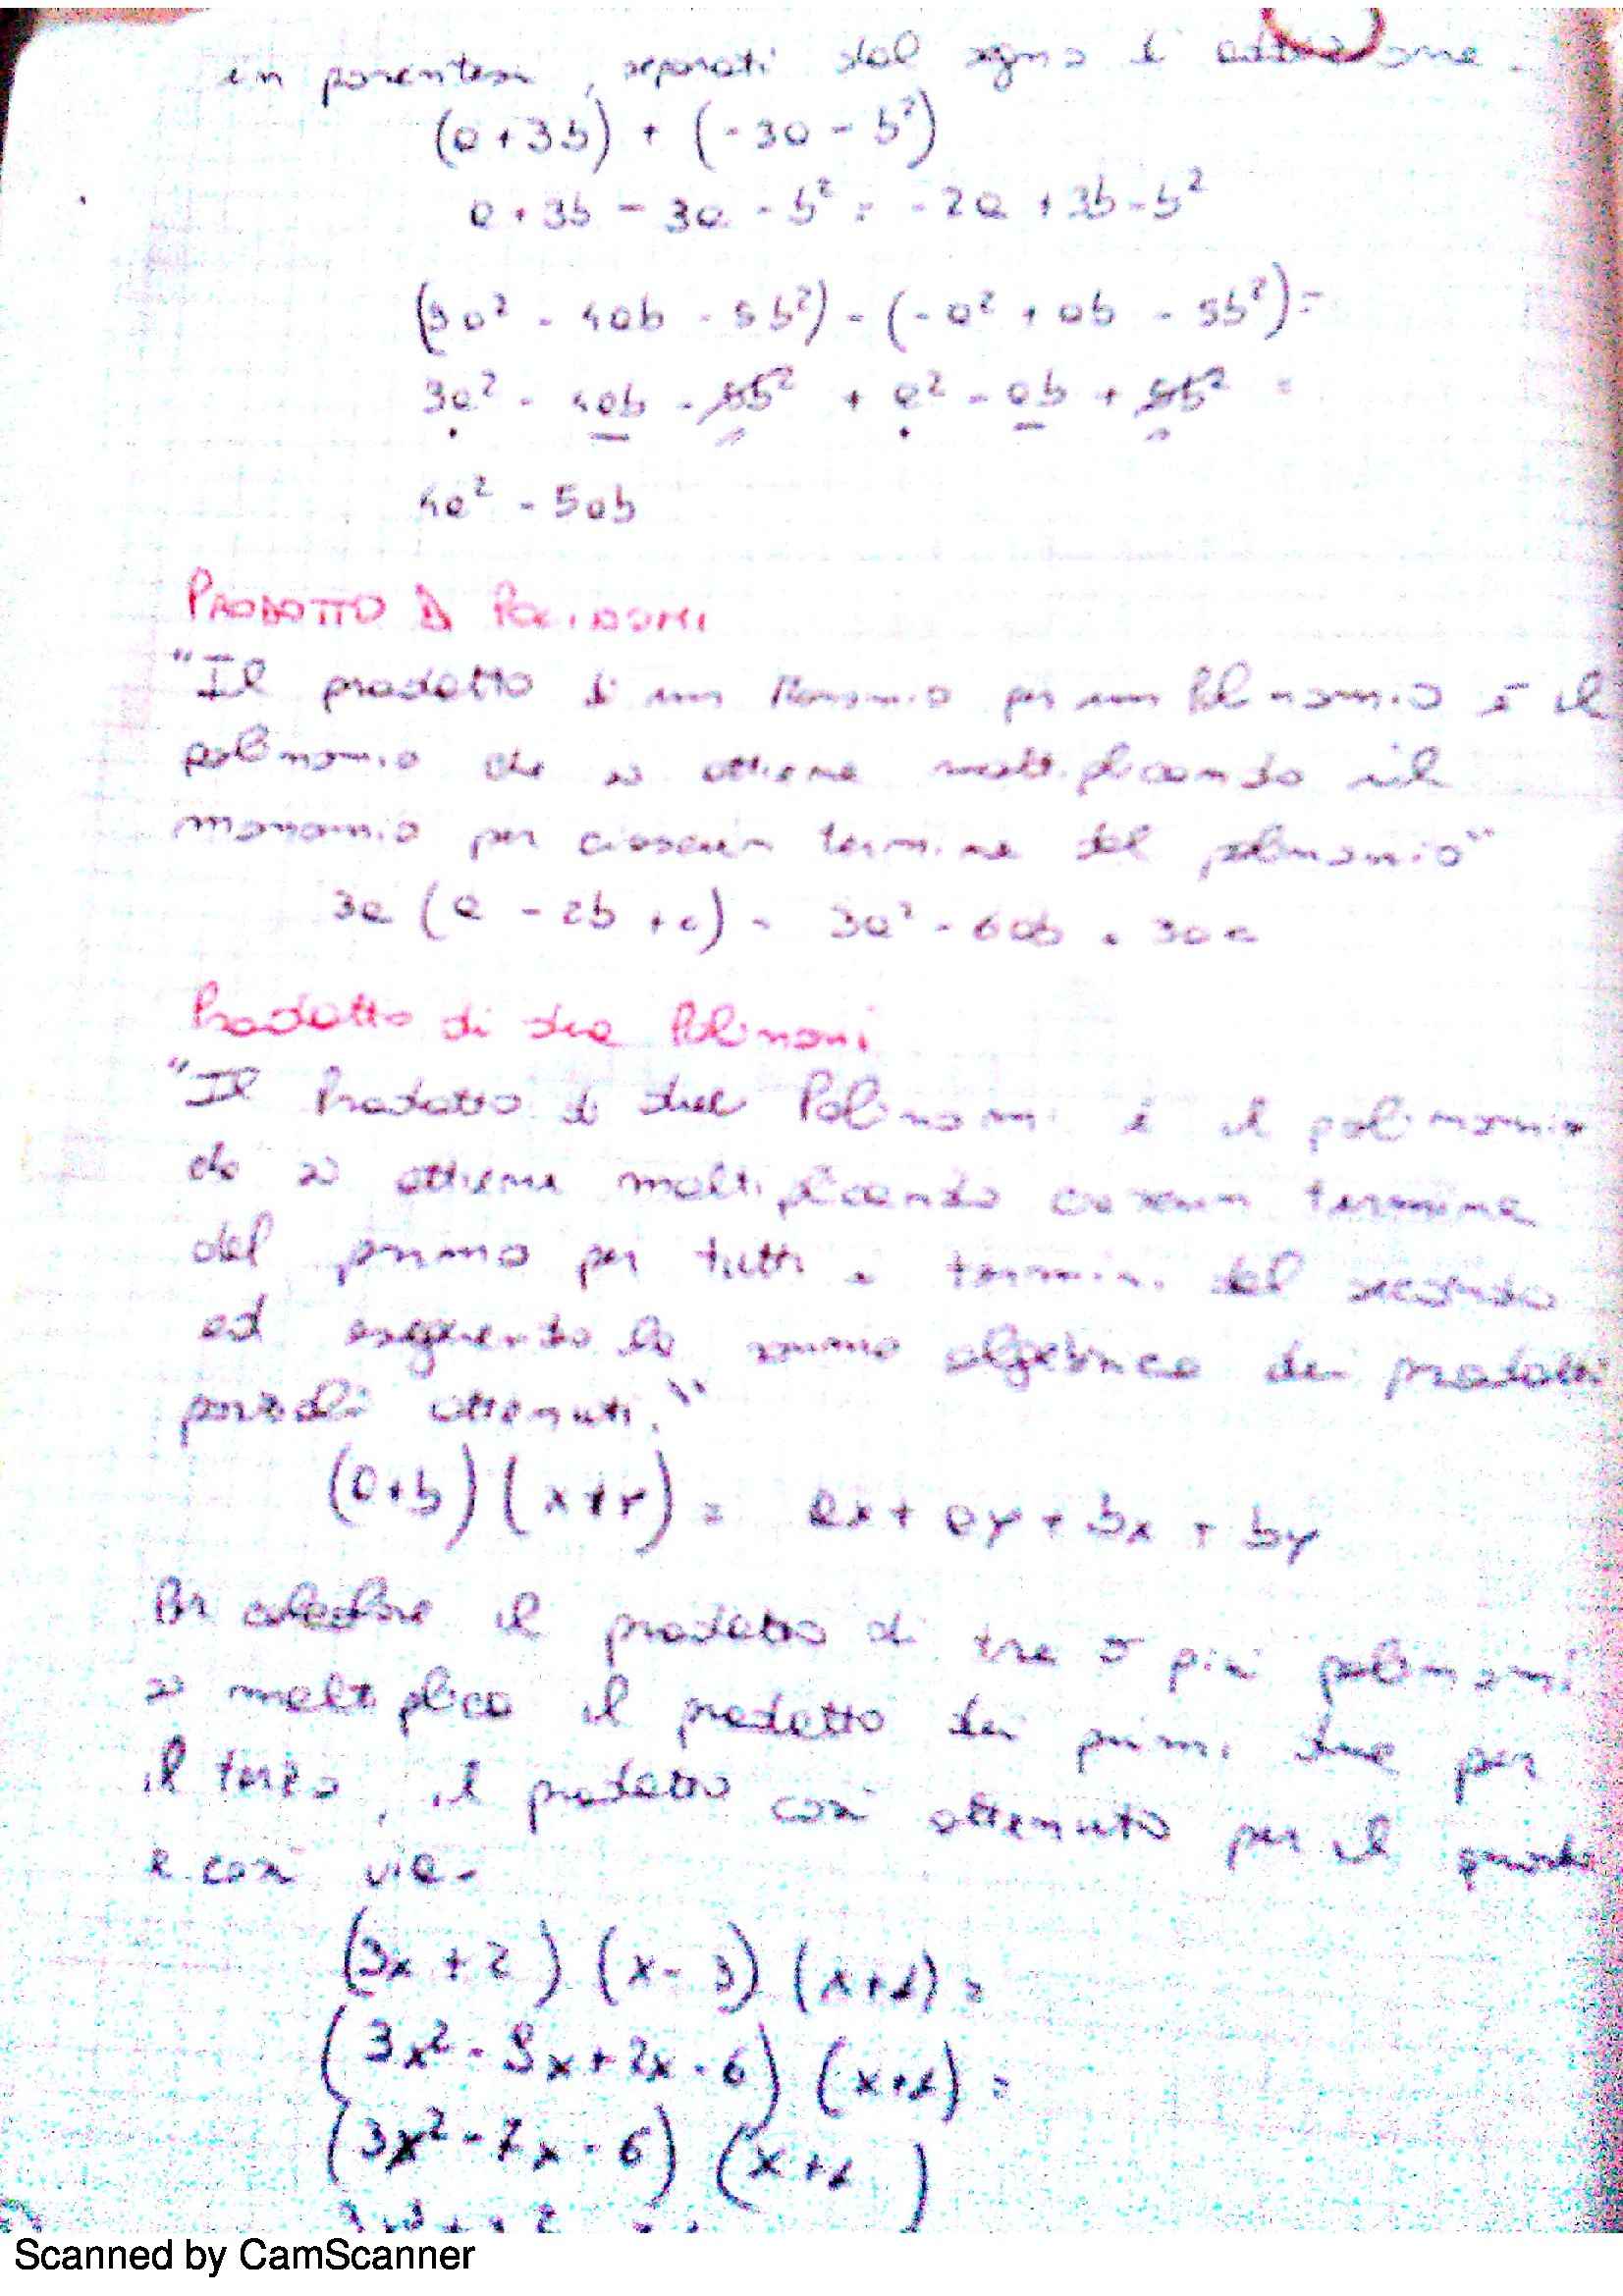 in parentesi, separati dal segno di addizione.
(a+3b) + (-3a - b²)
a + 3b - 3a - b² = -2a + 3b - b²
(3a² - 4ab - 5b²) - (-a² + ab - 5b²) =
3a² - 4ab - 5b² + a² - ab + 5b² =
4a² - 5ab
PRODOTTO DI POLINOMI
"Il prodotto di un Monomio per un Polinomio è il
polinomio che si ottiene moltiplicando il
monomio per ciascun termine del polinomio"
3a (a - 2b + c) = 3a² - 6ab + 3ac
Prodotto di due Polinomi
"Il Prodotto di due Polinomi è il polinomio
che si ottiene moltiplicando ciascun termine
del primo per tutti i termini del secondo
ed eseguendo la somma algebrica dei prodotti
parziali ottenuti."
(a+b) (x+y) = ax + ay + bx + by
Per calcolare il prodotto di tre o più polinomi
si moltiplica il prodotto dei primi due per
il terzo, il prodotto così ottenuto per il quarto
e così via.
(3x + 2) (x - 3) (x+1) =
(3x² - 9x + 2x - 6) (x+1) =
(3x² - 7x - 6) (x+1)
Scanned by CamScanner